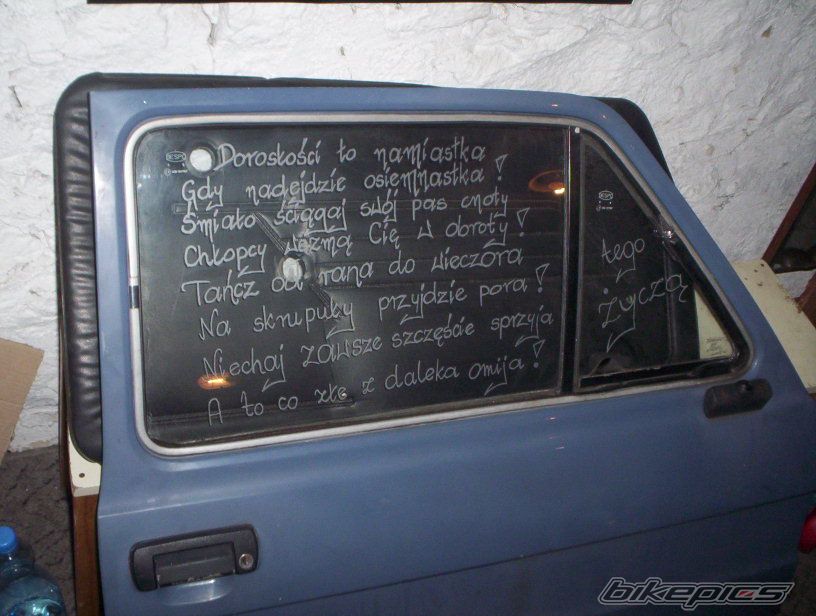 Dorosłości to namiastka
Gdy nadejdzie osiemnastka!
Śmiało ściągaj swój pas cnoty
Chłopcy wezmą Cię w obroty!
Tańcz od rana do wieczora
Na skrupuły przyjdzie pora!
Niechaj zawsze szczęście sprzyja
A to co złe z daleka omija!
tego
życzą
bikepics